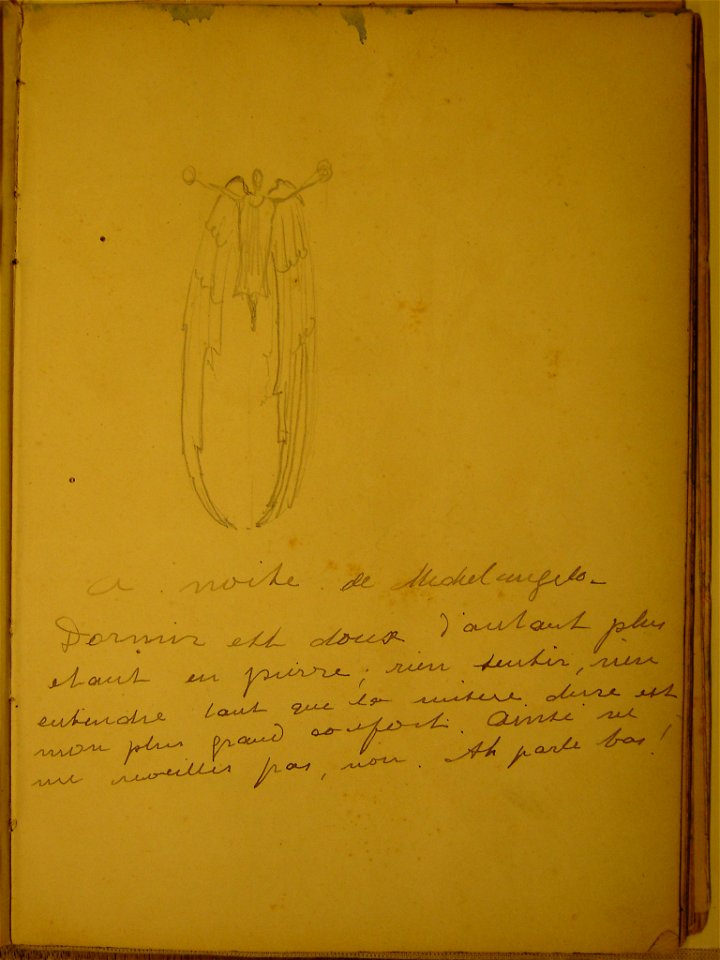 a noite de Michelangelo -
Dormir est doux d'autant plus
etant en pierre; rien sentir, rien
entendre tant que la misere dure est
mon plus grand confort. Ainsi ne
me reveilles pas, non. Ah parle bas!